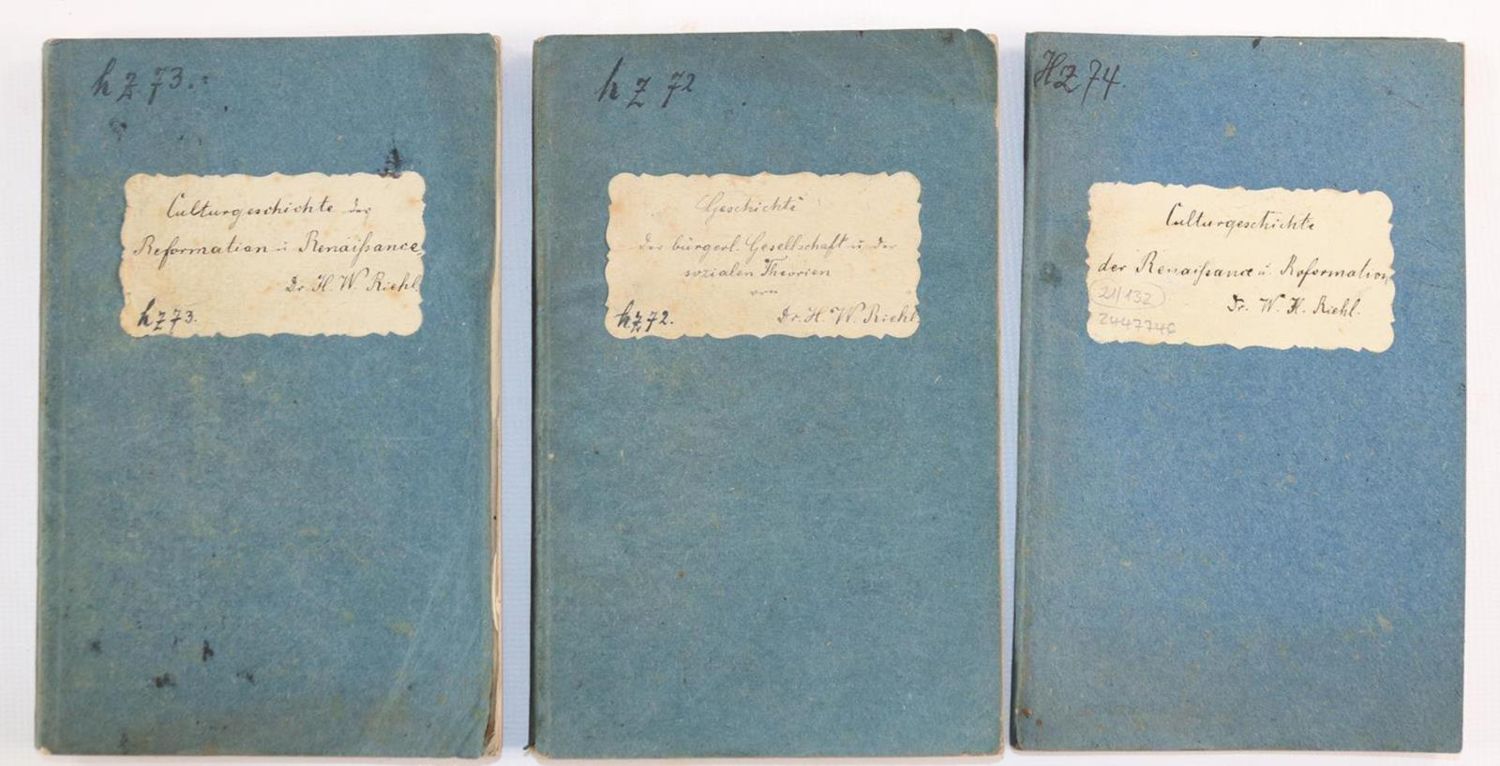 h Z 73.
Culturgeschichte der
Reformation u Renaißance,
Dr. H. W. Riehl
h Z 73.
h Z 72
Geschichte
der bürgerl. Gesellschaft u. der
sozialen Theorien
von
Dr. H. W. Riehl
h Z 72.
HZ 74.
Culturgeschichte
der Renaißance u. Reformation,
(21/132)
Dr. W. H. Riehl.
2447746